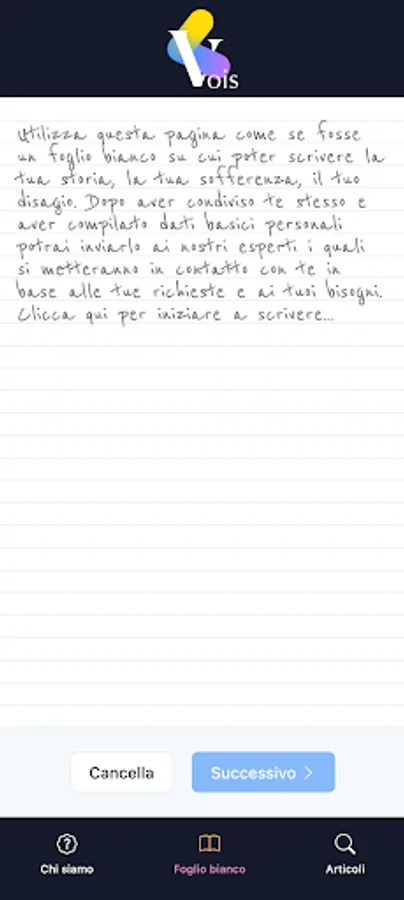 Vois
Utilizza questa pagina come se fosse
un foglio bianco su cui poter scrivere la
tua storia, la tua sofferenza, il tuo
disagio. Dopo aver condiviso te stesso e
aver compilato dati basici personali
potrai inviarlo ai nostri esperti i quali
si metteranno in contatto con te in
base alle tue richieste e ai tuoi bisogni.
Clicca qui per iniziare a scrivere...
Cancella
Successivo
Chi siamo
Foglio bianco
Articoli